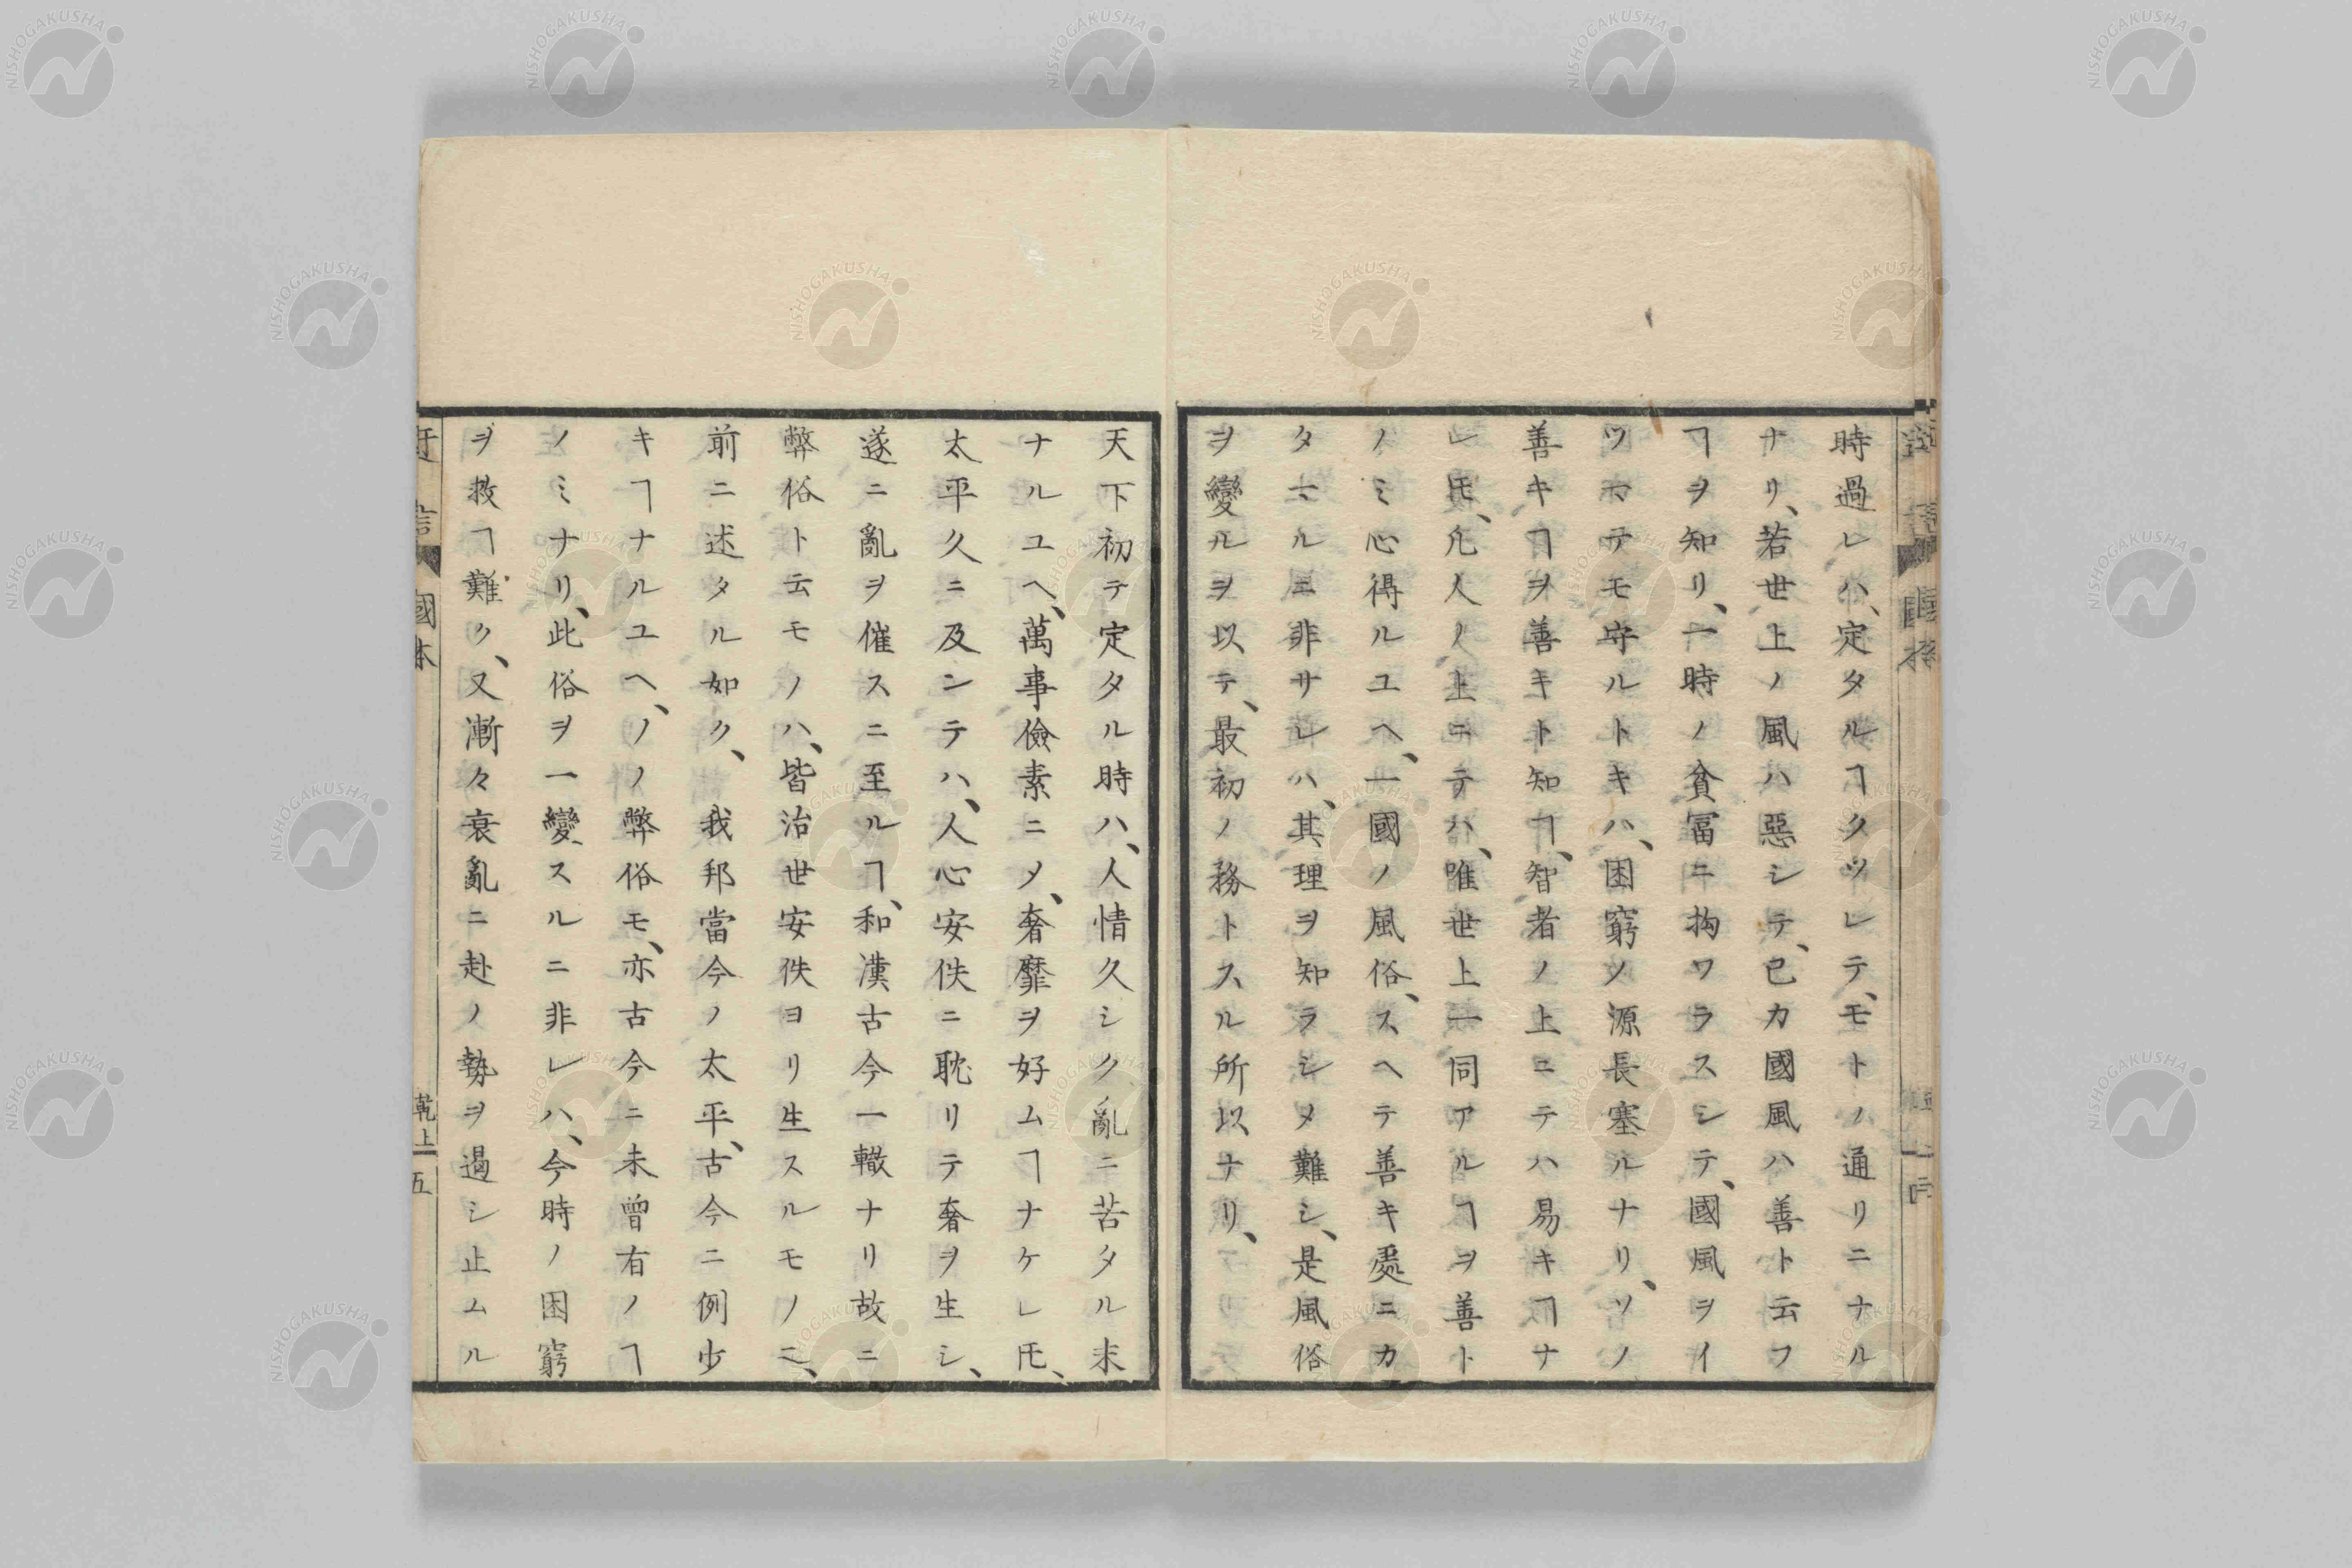 時過レハ、定タルヿクツレテ、モトノ通リニナル
ナリ、若世上ノ風ハ惡シテ、己カ國風ハ善ト云フ
ヿヲ知リ、一時ノ貧冨ニ抅ワラスシテ、國風ヲイ
ツマテモ守ルトキハ、困窮ノ源長塞ルナリ、ソノ
善キヿヲ善キト知ヿ、智者ノ上ニテハ易キヿナ
レ𪜈、凢人ノ上ニテハ、唯世上一同アルヿヲ善ト
ノミ心得ルユヘ、一國ノ風俗、スヘテ善キ處ニカ
タマルニ非サレハ、其理ヲ知ラシメ難シ、是風俗
ヲ變ルヲ以テ、最初ノ務トスル所以ナリ、
天下初テ定タル時ハ、人情久シク亂ニ苦タル末
ナルユヘ、萬事儉素ニメ、奢靡ヲ好ムヿナケレ𪜈、
太平久ニ及ンテハ、人心安佚ニ耽リテ奢ヲ生シ、
遂ニ亂ヲ催スニ至ルヿ、和漢古今一轍ナリ故ニ
弊俗ト云モノハ、皆治世安佚ヨリ生スルモノニ、
前ニ述タル如ク、我邦當今ノ太平、古今ニ例少
キヿナルユヘ、ノノ弊俗モ、亦古今ニ未曾有ノヿ
ノミナリ、此俗ヲ一變スルニ非レハ、今時ノ困窮
ヲ救ヿ難ク、又漸々衰亂ニ赴ノ勢ヲ遏シ止ムル
國本
乾上
五
NISHOGAKUSHA